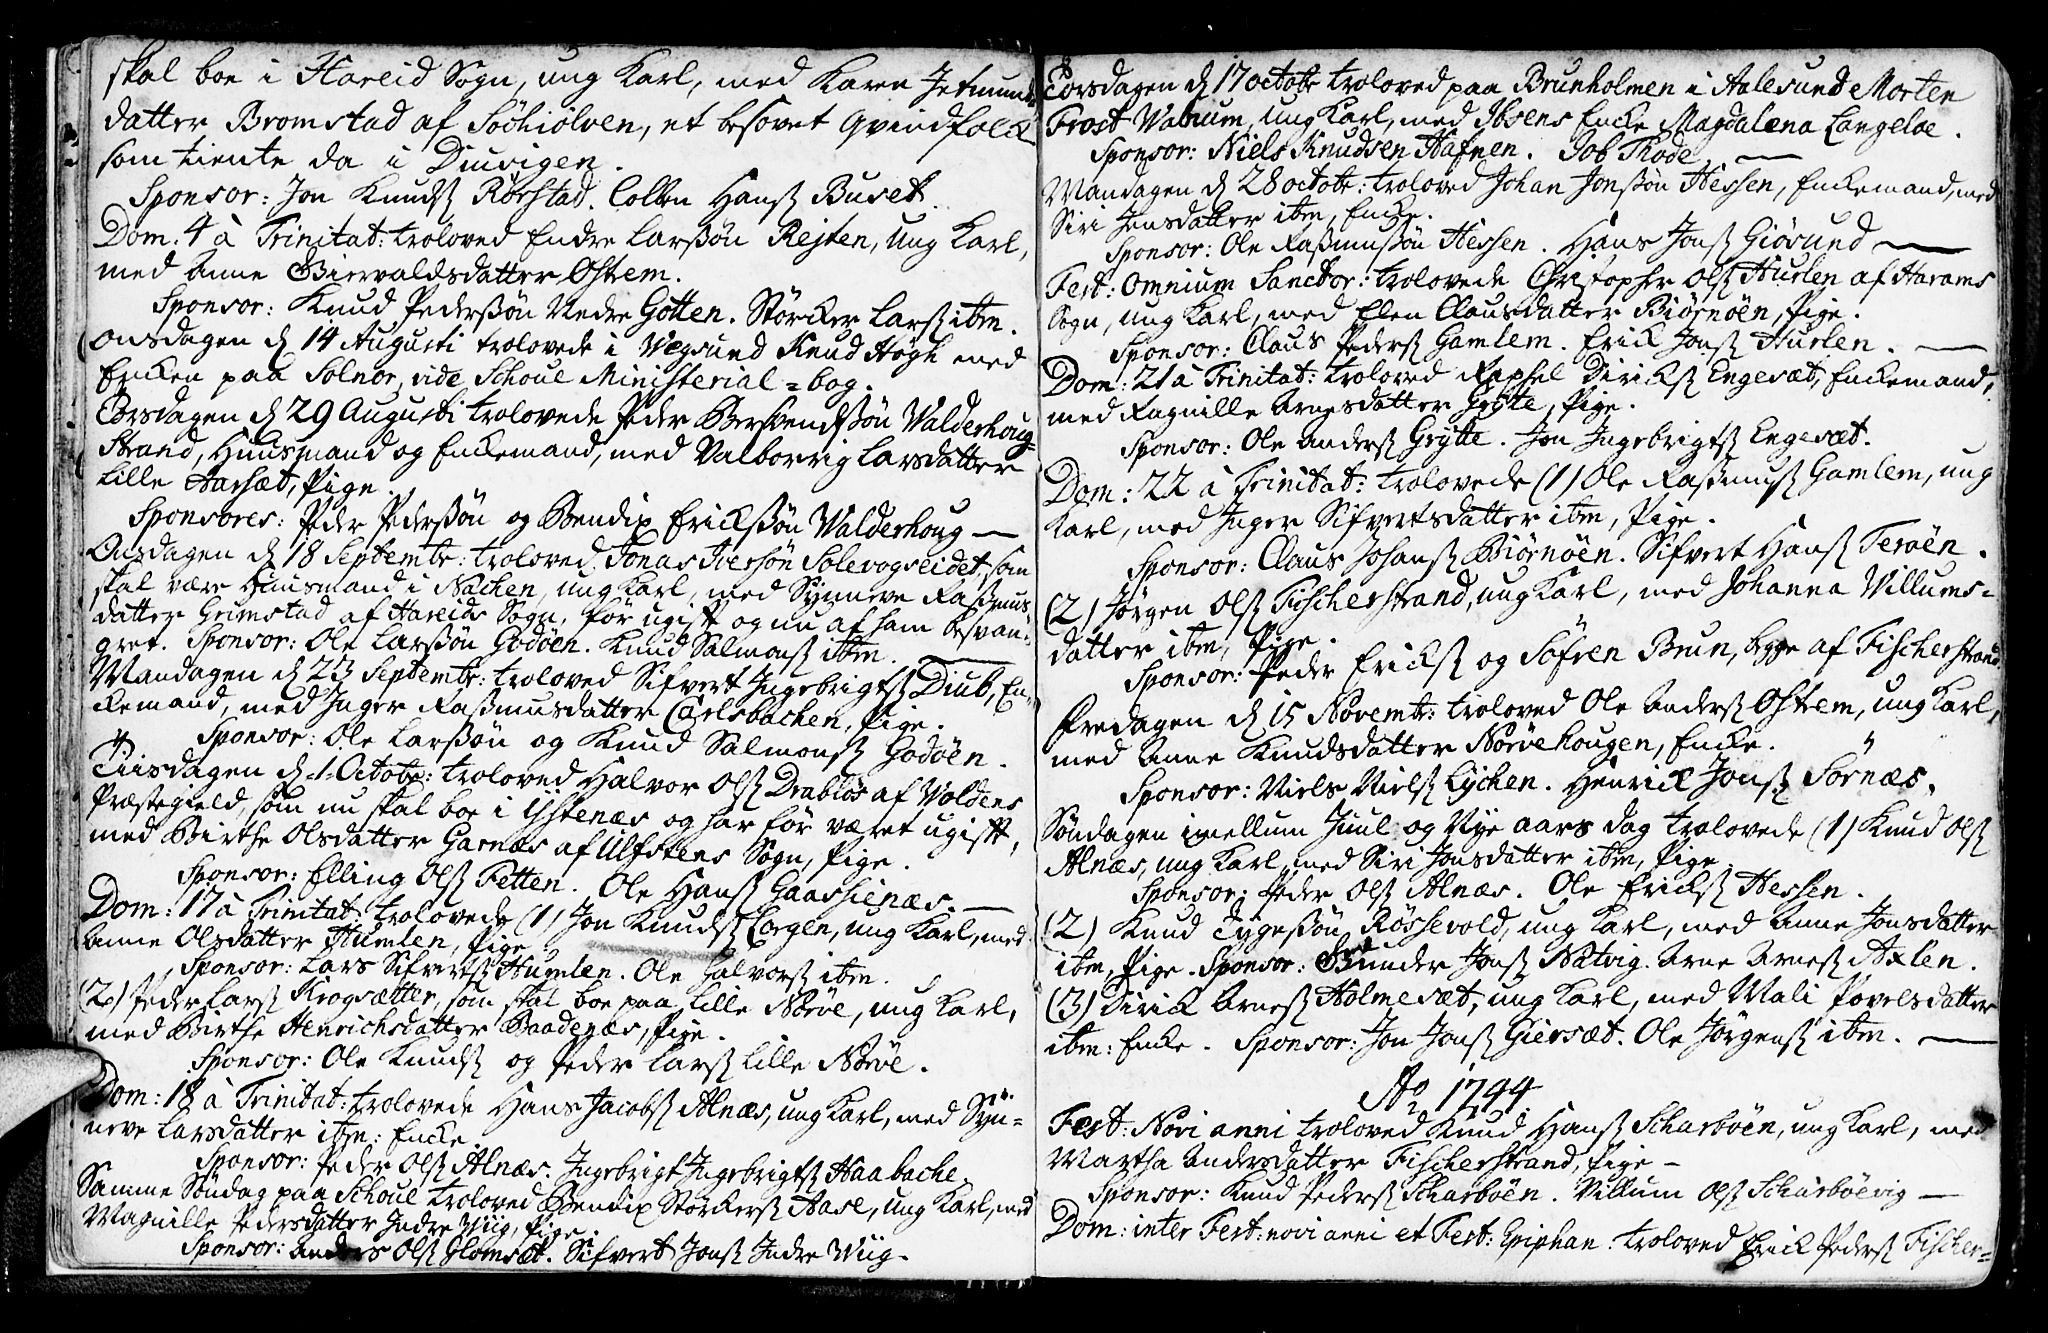 skal boe i Hareid Sogn, ung Karl, med Karen Jetmunds
datter Bromstad af Söchiölven, et besovet Qvindfolck
som tiente da i Diuvigen.
Sponsor: Jon Knudsß Rörstad. Colben Hansß Buset.
Dom. 4 à Trinitat: troloved Endre Larßön Rejten, ung Karl,
med Anne Giervaldsdatter Ostrem.
Sponsor: Knud Pederßön Nedre Gotten. Störcker Larsß ibm.
Onsdagen d 14 Augusti trolovede i Vegsund Knud Høgh med
Encken paa Solnor, vide Schoue Ministerial=bog.
Torsdagen d 29 Augusti trolovede Peder Berßvendßön Valderhoug
Strand, Huusmand og Enckemand, med Valborrig Larsdatter
Lille Aarsæt, Pige.
Sponsores: Peder Pederßön og Bendix Erickßön Valderhoug —
Onsdagen d 18 Septembr: troloved Jonas Iverßön Solevogseidet, som
skal være Huusmand i Nachen, ung Karl, med Synneve Raßmus
datter Grimstad af Hareids Sogn, för ugift og nu af ham besvan-
gret. Sponsor: Ole Larßön Godöen. Knud Salmonsß ibm.
Mandagen d 23 Septembr: troloved Sifvert Ingebrigtsß Diub, En-
ckemand, med Inger Raßmusdatter Carlsbachen, Pige.
Sponsor: Ole Larßön og Knud Salmonsß Godöen.
Tiisdagen d 1 Octobr: troloved Halvor Olsß Drablös af Voldens
Præstegield, som nu skal boe i Ystenæs og har för været ugift,
med Birthe Olsdatter Garnæs af Ulfstens Sogn, Pige.
Sponsor: Elling Olsß Fetten. Ole Hansß Gaasßienæs. —
Dom: 17 à Trinitat: trolovede (1) Jon Knudsß Corgen, ung Karl, med
Anne Olsdatter Humlen, Pige
Sponsor: Lars Sifvertsß Humlen. Ole Halvorsß ibm.
(2) Peder Larsß Krogsætter, som skal boe paa Lille Nörve, ung Karl,
med Birthe Henrichsdatter Baadenæs, Pige.
Sponsor: Ole Knudsß og Peder Larsß Lille Nörve.
Dom: 18 à Trinitat: trolovede Hans Jacobsß Alnæs, ung Karl, med Syn=
neve Larsdatter ibm: Encke.
Sponsor: Peder Olsß Alnæs. Ingebrigt Ingebrigtsß Haabache.
Samme Söndag paa Schoue troloved Bendix Störckersß Aase, ung Karl, med
Magnille Pedersdatter Indre Wiig, Pige.
Sponsor: Anders Olsß Glomsæt. Sifvert Jonsß Indre Wiig.
Torsdagen d 17 octobr troloved paa Brunholmen i Aalesund Morten
Frost Watuum, ung Karl, med Ibsens Encke Magdalena Langeloe.
Sponsor: Niels Knudsen Hafnen. Job Thode. —
Mandagen d 28 octobr: troloved Johan Jonßön Hessen, Enckemand, med
Siri Jensdatter ibm, Encke.
Sponsor: Ole Raßmußön Hessen. Hans Jonsß Giösund —
Fest: Omnium Sanctor: trolovede Christopher Olsß Hurlen af Harams
Sogn, ung Karl, med Elen Clausdatter Biörnöen, Pige.
Sponsor: Claus Pedersß Gamlem. Erick Jonsß Hurlen. —
Dom: 21 à Trinitat: troloved Raphel Diricksß Engesæt, Enckemand,
med Ragnille Arnesdatter Grytte, Pige.
Sponsor: Ole Andersß Grytte. Jon Ingebrigtsß Engesæt.
Dom: 22 à Trinitat: trolovede (1) Ole Raßmusß Gamlem, ung
Karl, med Inger Sifvertsdatter ibm, Pige.
Sponsor: Claus Johansß Biörnöen. Sifvert Hansß Teröen.
(2) Jörgen Olsß Fischerstrand, ung Karl, med Johanna Villums=
datter ibm, Pige.
Sponsor: Peder Ericksß og Söfren Brun, begge af Fischerstrand
Fredagen d 15 Novembr: troloved Ole Andersß Ostrem, ung Karl,
med Anne Knudsdatter Nörvehougen, Encke.
Sponsor: Niels Nielsß Lychen. Henrick Jonsß Sornæs.
Söndagen imellum Juul og Nye aars dag trolovede (1) Knud Olsß
Alnæs, ung Karl, med Siri Jonsdatter ibm, Pige.
Sponsor: Peder Olsß Alnæs. Ole Ericksß Hessen.
(2) Knud Tygeßön Rösßevold, ung Karl, med Anne Jonsdatter
ibm, Pige. Sponsor: Gunder Jonsß Natvig. Arne Arnesß Axlen.
(3) Dirick Arnesß Holmesæt, ung Karl, med Mali Povelsdatter
ibm: Encke. Sponsor: Jon Jonsß Giersæt. Ole Jörgensß ibm. —
Ao 1744
Fest: Novi anni troloved Knud Hansß Scharböen, ung Karl, med
Martha Andersdatter Fischerstrand, Pige —
Sponsor: Knud Pedersß Scharböen. Villum Olsß Scharböevig —
Dom: inter Fest: novi anni et Fest: Epiphan: troloved Erick Pedersß Fischer=